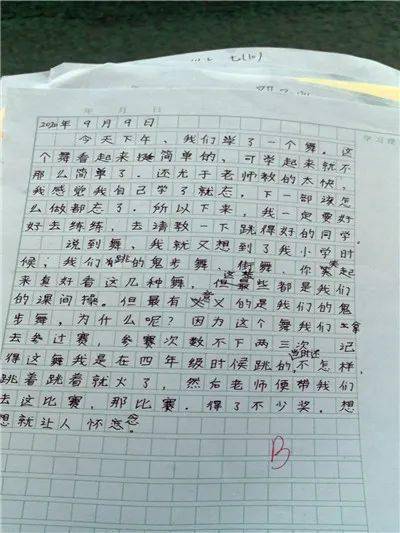 年 月 日
学习使
2020年9月9日
今天下午、我们学了一个舞。这
个舞看起来挺简单的、可学起来就不
那么简单了。还尤于老师教的太快，
我感觉我自己学了就忘，下一部该怎
么做都忘了。所以下来，我一定要好
好去练练，去请教一下跳得好的同学
说到舞、我就又想到了我小学时
候，我们有跳的鬼步舞、街舞、你笑起
来真好看这几种舞，但这些都是我们
的课间操。但最有意义的是我们的鬼
步舞，为什么呢？因为这个舞我们拿
去参过赛，参赛次数不下两三次 记
得这舞我是在四年级时候跳的当时还不怎样，
跳着跳着就火了，然后老师便带我们
去这比赛，那比赛。得了不少奖。想
想就让人怀念。
B